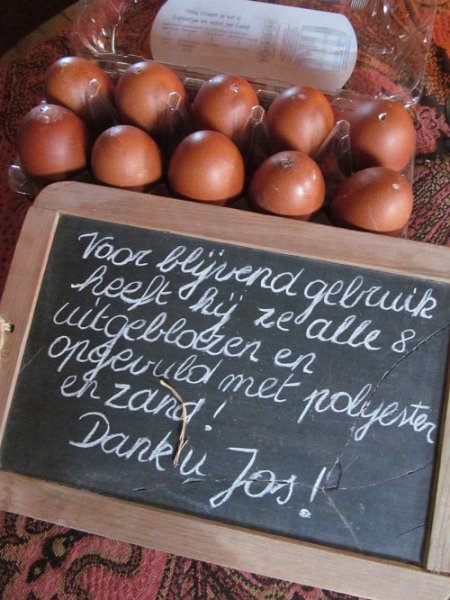 Voor blijvend gebruik
heeft hij ze alle 8
uitgeblazen en
opgevuld met polyester
en zand!
Dank u Jos!